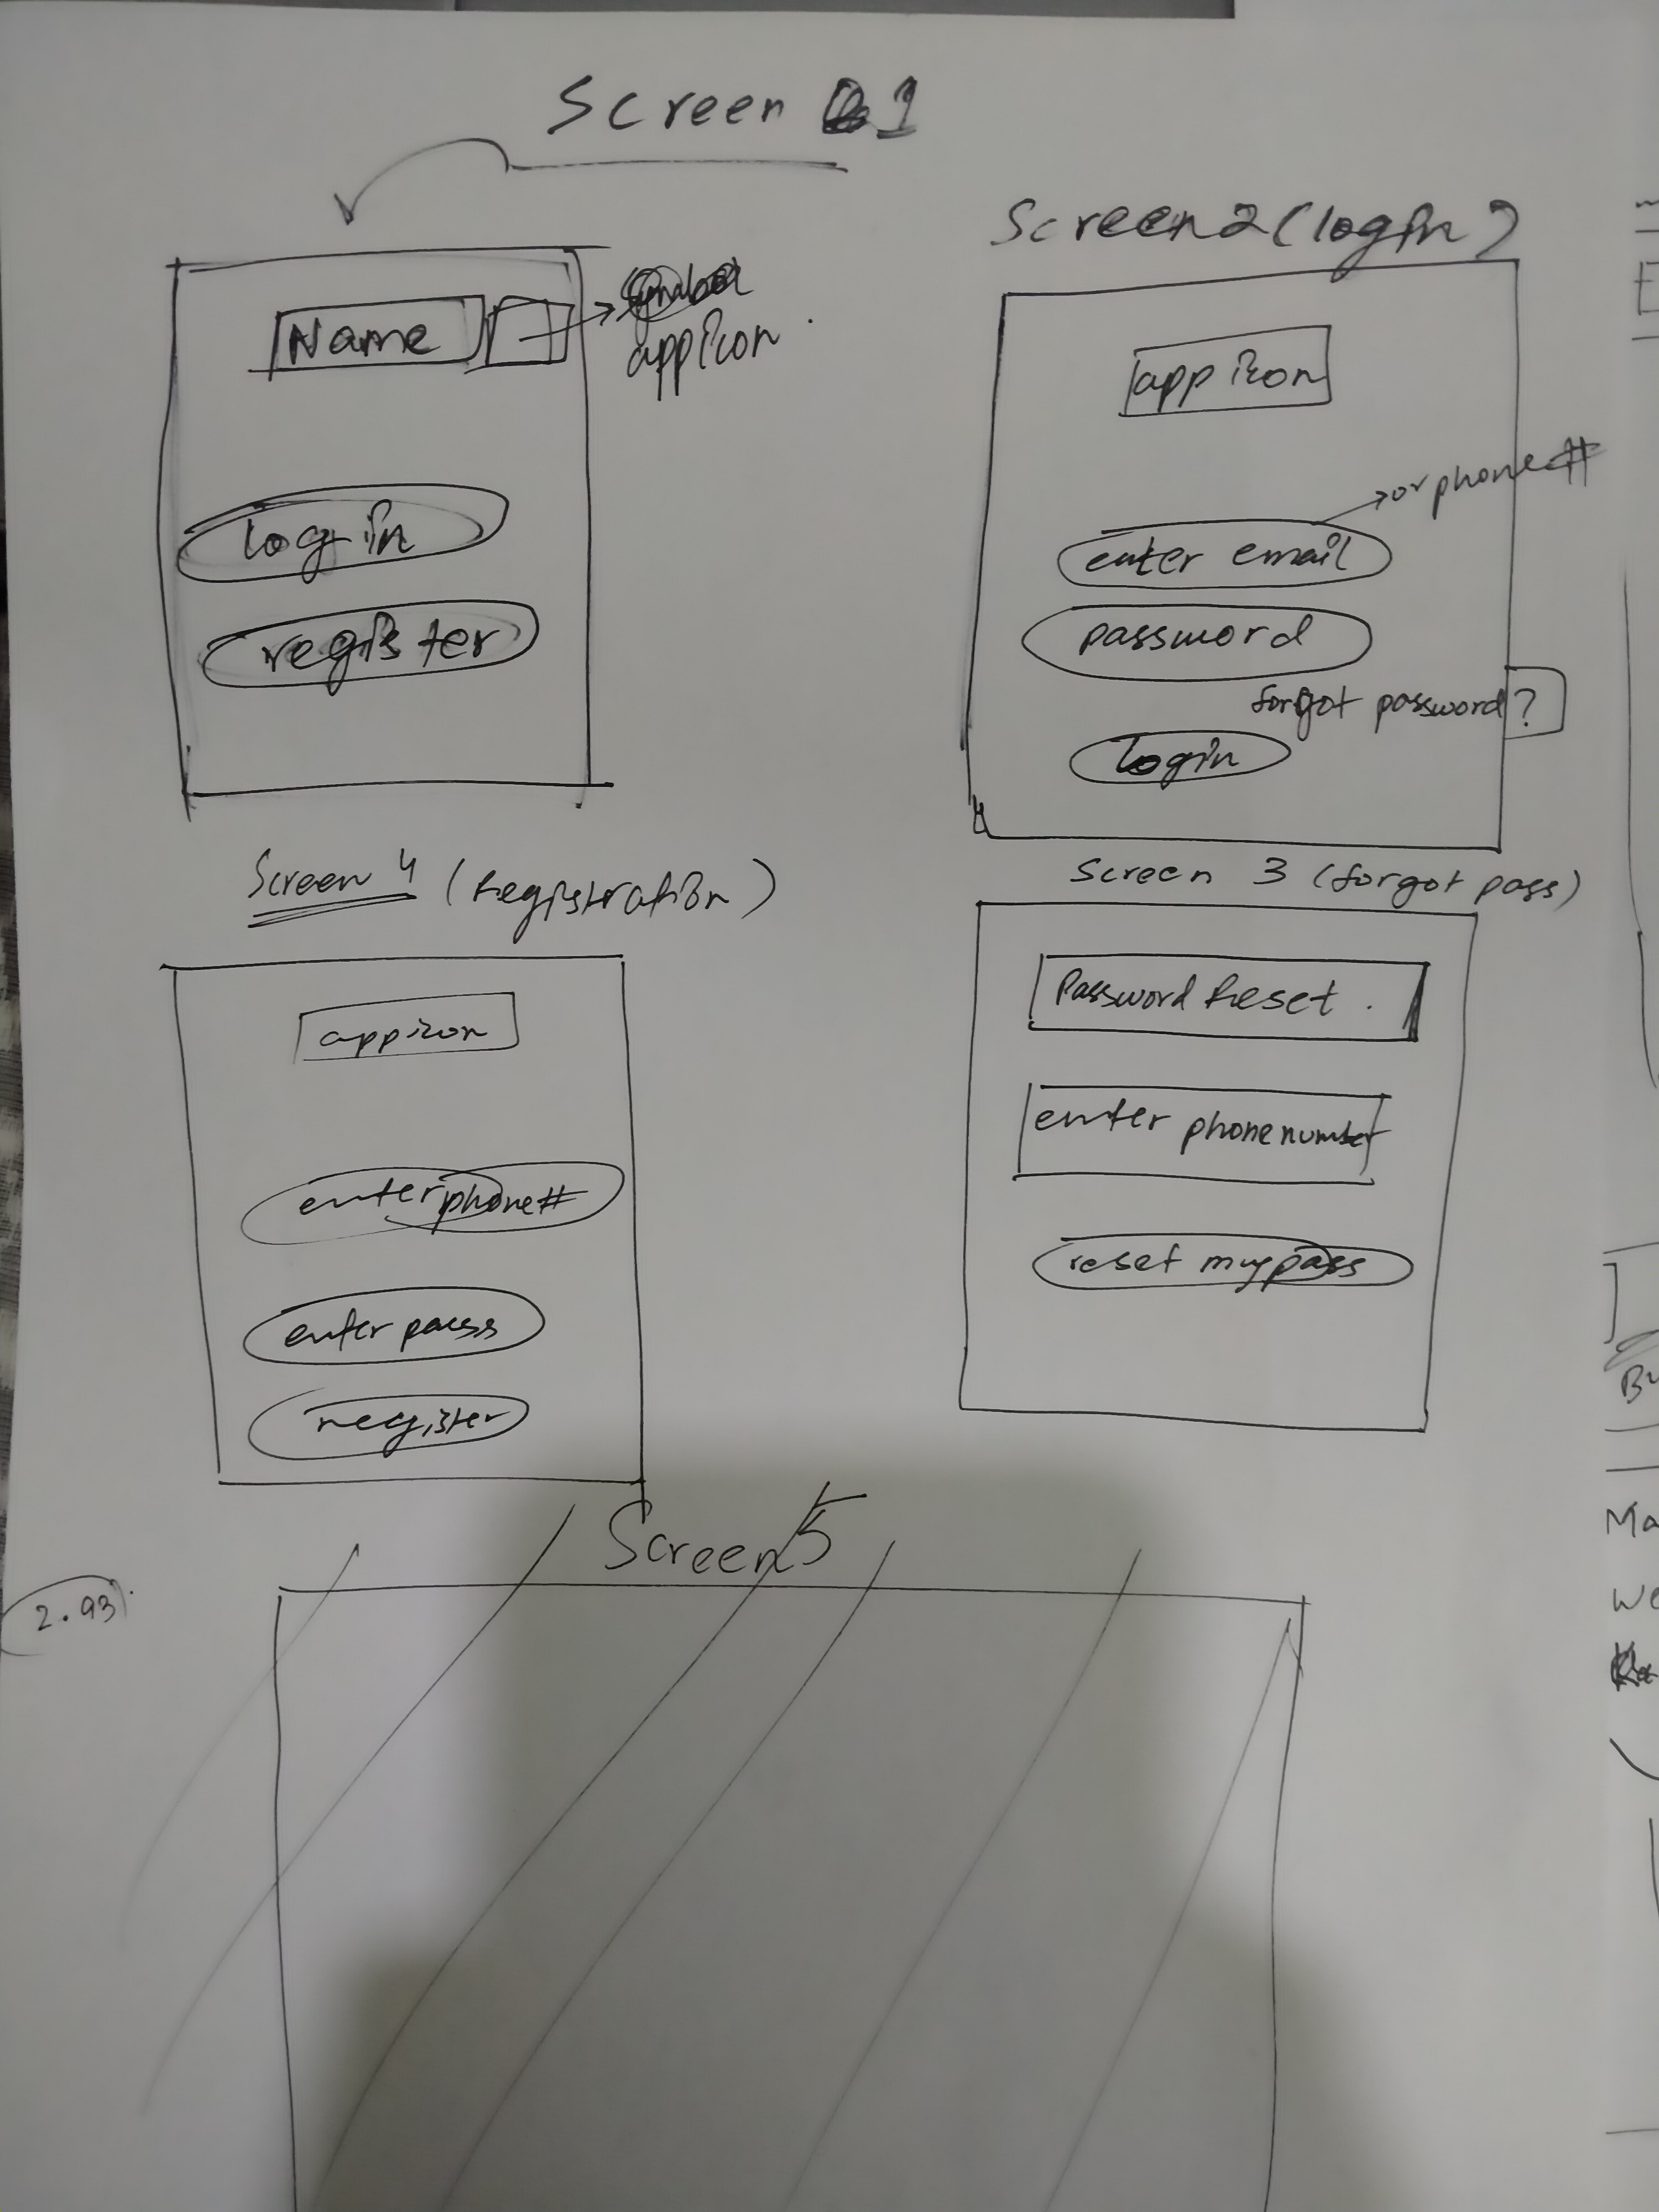 Screen 1
Name
app icon
log in
register
Screen 2 (login)
app icon
or phone #
enter email
password
forgot password?
login
Screen 4 (Registration)
app icon
enter phone #
enter pass
register
Screen 3 (forgot pass)
Password Reset.
enter phone number
reset my pass
Screen 5
2.93
Ma
We